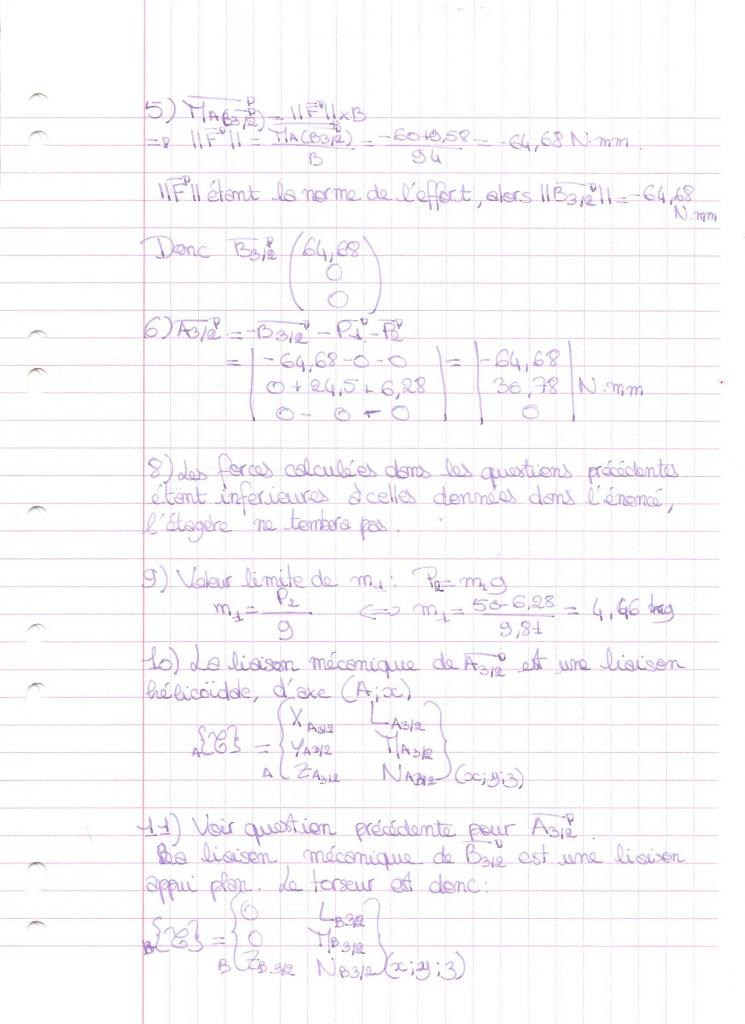 5) M⃗A(B3/2) = ||F⃗|| × B
=> ||F⃗|| = M⃗A(B3/2) / B = -6079,58 / 94 = -64,68 N.mm
||F⃗|| étant la norme de l'effort, alors ||B⃗3/2|| = -64,68 N.mm
Donc B⃗3/2 (64,68
0
0)
6) A⃗3/2 = -B⃗3/2 - P⃗1 - P⃗2
= | -64,68 - 0 - 0 | = | -64,68 |
| 0 + 24,5 + 6,28 | | 30,78 | N.mm
| 0 - 0 - 0 | | 0 |
8) Les forces calculées dans les questions précédentes
étant inférieures à celles données dans l'énoncé,
l'étagère ne tombera pas.
9) Valeur limite de m1 : P2 = m1g
m1 = P2 / g <=> m1 = 50-6,28 / 9,81 = 4,46 kg
10) La liaison mécanique de A⃗3/2 est une liaison
hélicoïdale, d'axe (A;x)
A{T} = { XA3/2 LA3/2
YA3/2 MA3/2
A ZA3/2 NA3/2 } (x;y;z)
11) Voir question précédente pour A⃗3/2.
La liaison mécanique de B⃗3/2 est une liaison
appui plan. Le torseur est donc :
B{T} = { 0 LB3/2
0 MB3/2
B ZB3/2 NB3/2 } (x;y;z)